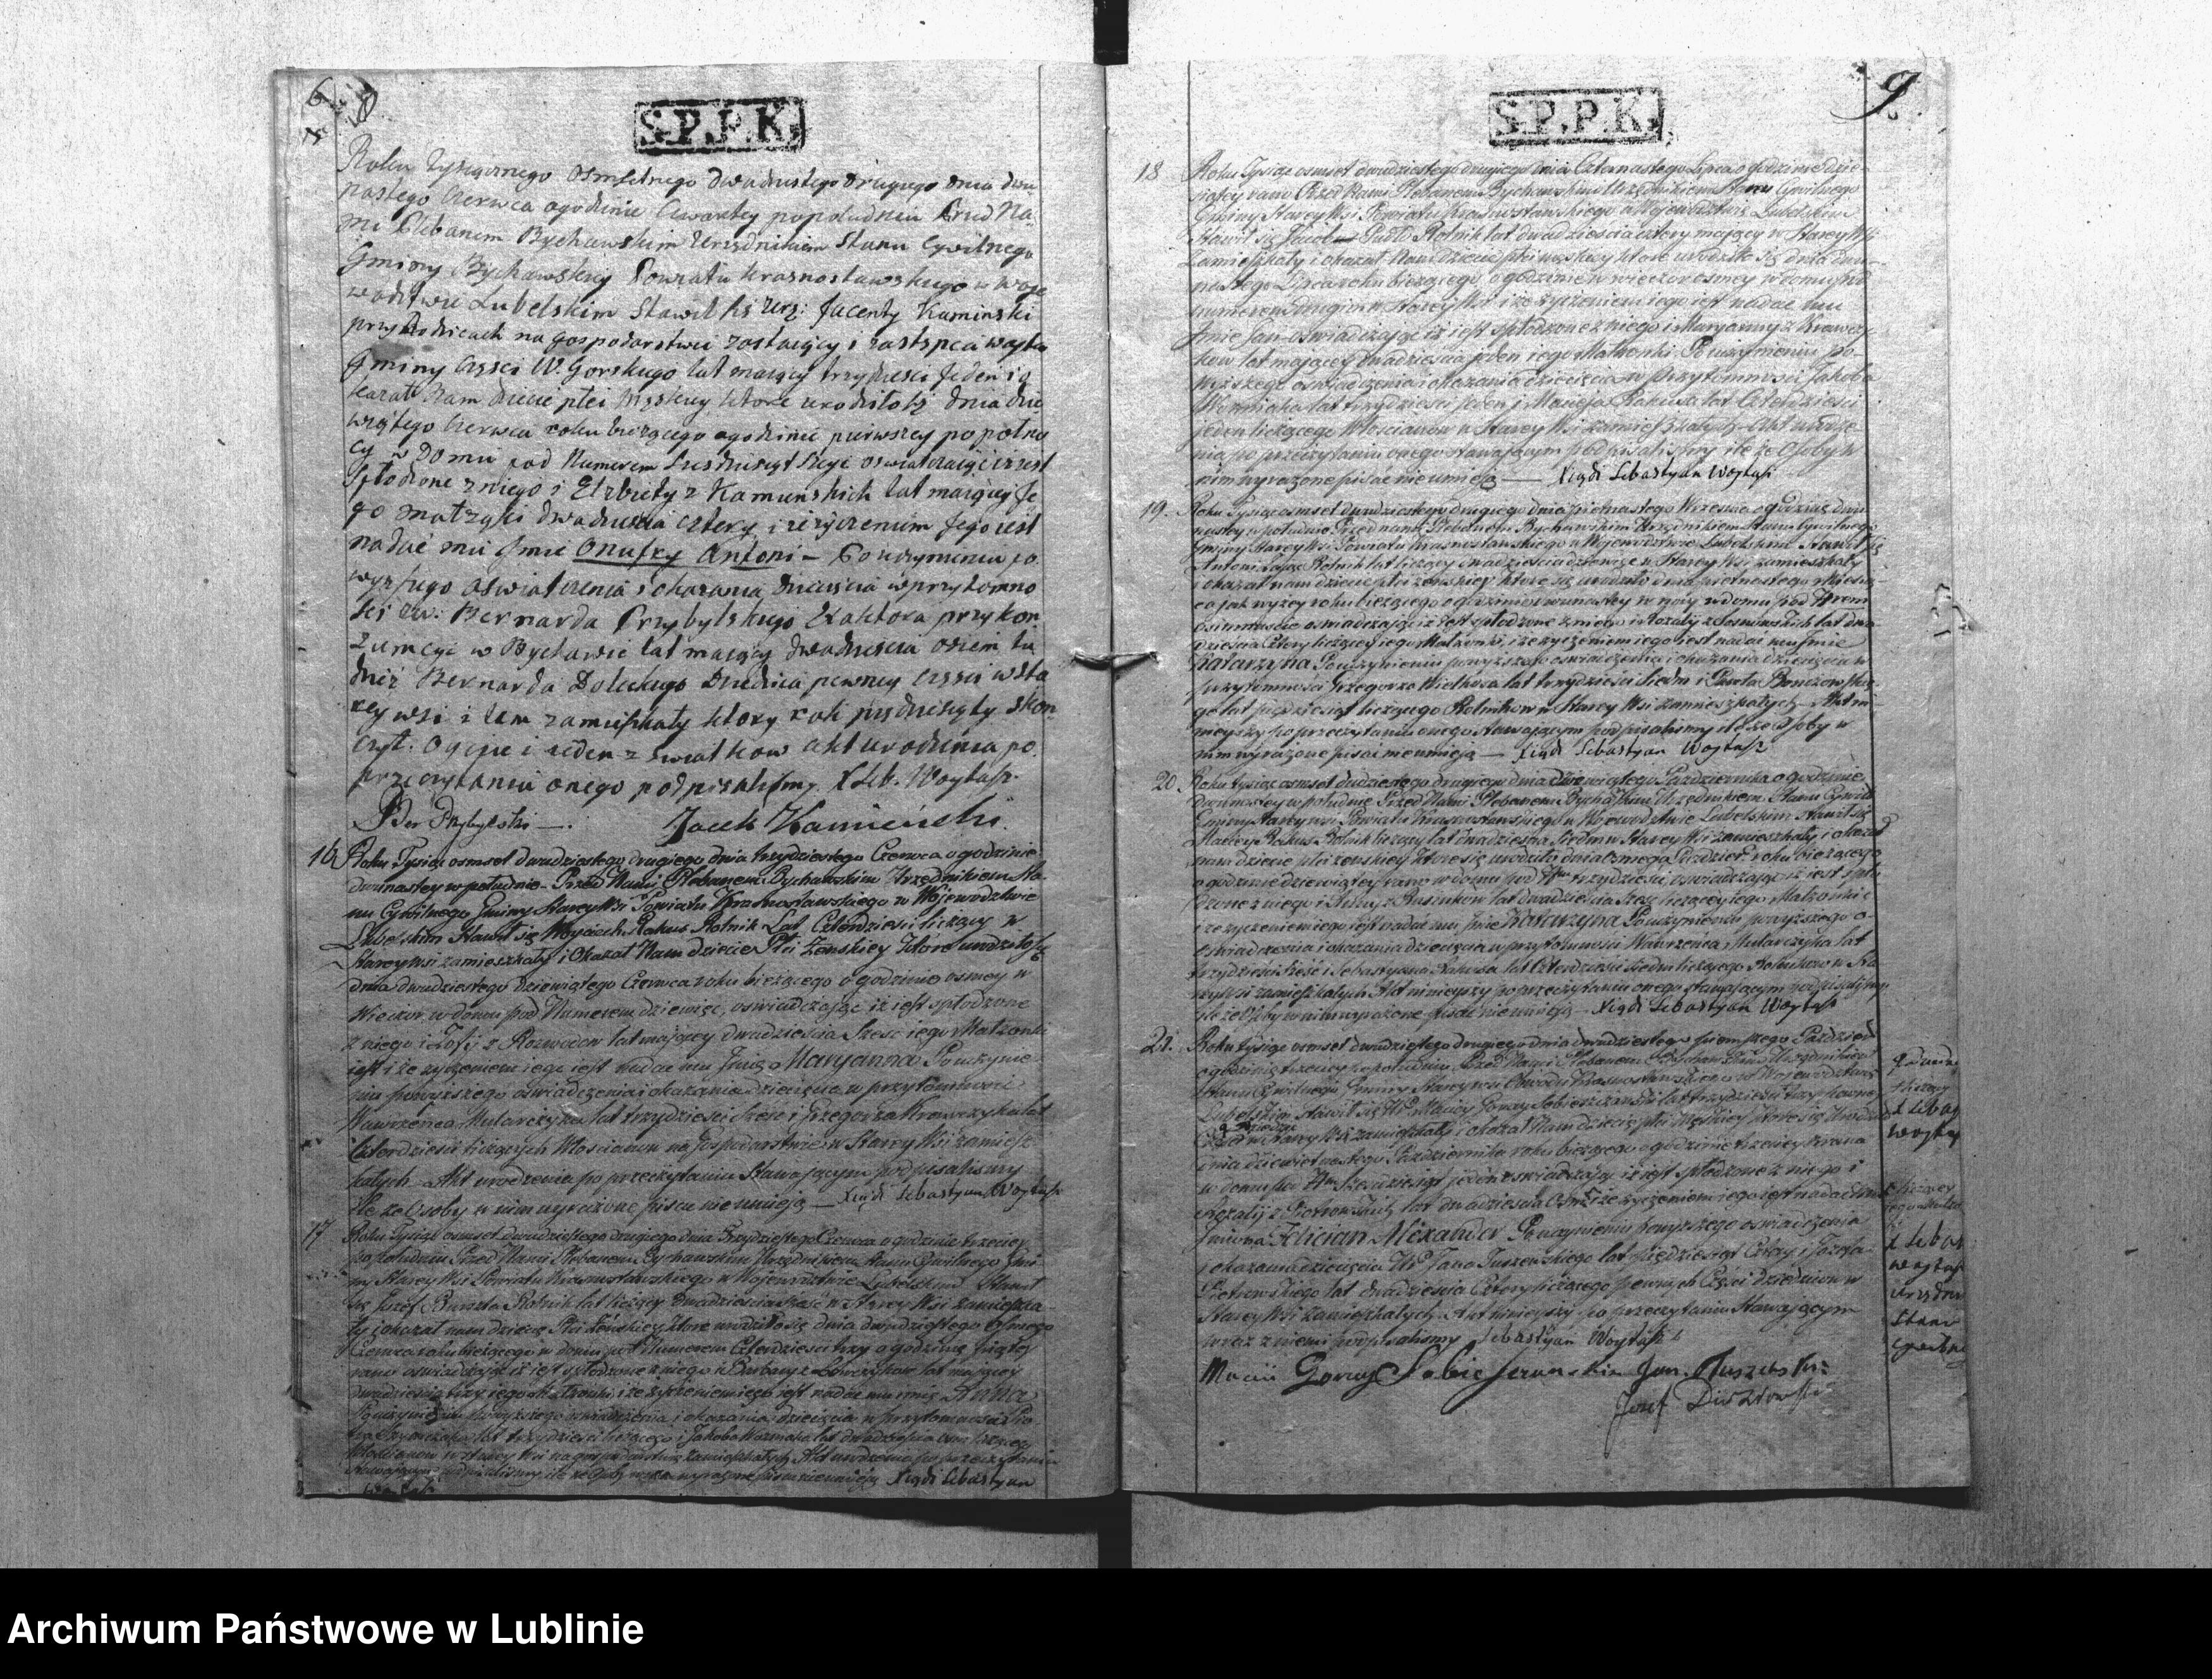 8
S.P.P.K.
Roku Tysiącznego Osmsetnego dwadziestego drugiego dnia dwu
nastego Czerwca o godzinie czwartey popołudniu Przed Na
mi Plebanem Bychawskim Urzędnikiem Stanu Cywilnego
Gminy Bychawskiey Powiatu Krasnostawskiego w Woje
wodztwie Lubelskim Stawił się Urz: Jacenty Kaminski
przy Rodzicach na gospodarstwie zostaiący i zastępca woyta
Gminy Części W. Gorskiego lat maiący trzydzieści jeden i o
kazał Nam dziecie płci męskiey które urodziło się dnia dzie
wiątego Czerwca roku bieżącego o godzinie pierwszey po połno
cy w Domu pod Numerem oswiadczaiąc iż jest
spłodzone z niego i Elzbiety z Kaminskich lat maiącey Je
go małżąki dwadzieścia cztery, i że życzeniem Jego jest
nadać mu Jmie Onufry Antoni – Po uczynieniu po
wyższego oswiadczenia i okazania dziecięcia w przytomno
ści Ur: Bernarda Przybylskiego Traktora przy kon
sumcyi w Bychawie lat maiący dwadzieścia osiem tu
dzież Bernarda Doleckiego Dziedzica pewney części w Sta
rey wsi i tam zamieszkały który rok pięćdziesiąty skoń
czył. Oyciec i jeden z swiadków akt urodzenia po
przeczytaniu onego podpisaliśmy X Seb. Woytasz.
Ber Przybylski —. Jacek Kamieński.
16 Roku Tysiąc osmset dwudziestego drugiego dnia trzydziestego Czerwca o godzinie
dwunastey w południe – Przed Nami Plebanem Bychawskim Urzędnikiem Sta
nu Cywilnego Gminy Starey Wsi Powiatu Krasnostawskiego w Wojewodztwie
Lubelskim Stawił się Woyciech Rakus Rolnik Lat Czterdzieści liczący w
Starey Wsi zamieszkały i Okazał Nam dziecie Płci Żenskiey które urodziło się
dnia dwudziestego dziewiątego Czerwca roku bieżącego o godzinie osmey w
Wieczor w domu pod Numerem dziewięć, oswiadczając iż jest spłodzone
z niego i Zofij z Rozwodow lat mającey dwadzieścia Szesc jego Małżonki
jest i że życzeniem jego jest nadać mu Jmię Maryanna Po uczynie
niu powyższego oswiadczenia i okazania dziecięcia w przytomności
Wawrzenca Mularczyka lat trzydzieści szesc i Grzegorza Krawczyka lat
Czterdzieści liczących Włoscianow na gospodarstwie w Starey Wsi zamiesz
kałych – Akt urodzenia po przeczytaniu Stawającym podpisalismy
ile że Osoby w nim wyrażone pisać nie umieją — Xiądz Sebastyan Woytasz
17 Roku Tysiąc osmset dwudziestego drugiego dnia Trzydziestego Czerwca o godzinie trzeciey
po południu Przed Nami Plebanem Bychawskim Urzędnikiem Stanu Cywilnego Gmi
ny Starey Wsi Powiatu Krasnostawskiego w Wojewodztwie Lubelskim Stawił
się Jozef Rolnik lat liczący dwadzieścia szesc w Starey Wsi zamieszka
ły i okazał nam dziecię Płci Żenskiey które urodziło się dnia dwudziestego Osmego
Czerwca roku bieżącego w domu pod Numerem Czterdzieści trzy o godzinie piątey
rano oswiadczając iż jest spłodzone z niego i Barbary z lat mającey
dwadzieścia trzy jego Małżonki i że życzeniem jego jest nadać mu imie Anna
Po uczynieniu powyższego oswiadczenia i okazania dziecięcia w przytomności
lat trzydzieści liczącego i Jakoba Wozniaka lat dwadzieścia osm liczący
Włoscianow w Starey Wsi na gospodarstwie zamieszkałych Akt urodzenia po przeczytaniu
Stawającym podpisalismy ile że Osoby w nim wyrażone pisać nie umieją Xiądz Sebastyan
Woytasz
9.
S.P.P.K.
18 Roku Tysiąc osmset dwudziestego drugiego dnia Czternastego Lipca o godzinie dzie
siątey rano Przed Nami Plebanem Bychawskim Urzędnikiem Stanu Cywilnego
Gminy Starey Wsi Powiatu Krasnostawskiego w Wojewodztwie Lubelskim
Stawił się Rolnik lat dwadzieścia cztery mający w Starey Wsi
Zamieszkały i okazał Nam dziecie płci męskiey które urodziło się dnia dwu
nastego Lipca roku bieżącego o godzinie w wieczor osmey w domu pod
numerem drugim w Starey Wsi i że życzeniem jego jest nadać mu
Jmie Jan oswiadczając iż jest spłodzone z niego i Maryanny z Krawczy
kow lat mającey dwadzieścia jeden jego Małżonki. Po uczynieniu po
wyższego oswiadczenia i okazania dziecięcia w przytomności Jakoba
Wozniaka lat trzydzieści jeden i Macieja Rakusa lat Czterdzieści
jeden liczącego Włoscianow w Starey Wsi zamieszkałych – Akt urodze
nia po przeczytaniu onego stawającym podpisalismy ile że Osoby w
nim wyrażone pisać nie umieją — Xiądz Sebastyan Woytasz
19. Roku Tysiąc osmset dwudziestego drugiego dnia piętnastego Wrzesnia o godzinie dwu
nastey w południe Przed nami Plebanem Bychawskim Urzędnikiem Stanu Cywilnego
Gminy Starey Wsi Powiatu Krasnostawskiego w Wojewodztwie Lubelskim Stawił się
Antoni Rolnik lat liczący dwadzieścia dziewięć w Starey Wsi zamieszkały
i okazał nam dziecie płci żenskiey które się urodziło dnia piętnastego Miesią
ca jak wyżey roku bieżącego o godzinie w nocy w domu pod Nrem
osiemnaście oswiadczając iż jest spłodzone z niego i Rozalij z Sosnowskich lat dwa
dzieścia Cztery liczącey jego Małżonki, i że życzeniem jego jest nadać mu Jmie
Katarzyna Po uczynieniu powyższego oswiadczenia i okazania dziecięcia w
przytomności Grzegorza lat trzydzieści siedm i Pawła
go lat pięcdziesiąt liczącego Rolnikow w Starey Wsi zamieszkałych – Akt ni
nieyszy po przeczytaniu onego stawającym podpisalismy ile że Osoby w
nim wyrażone pisać nie umieją — Xiądz Sebastyan Woytasz
20. Roku Tysiąc osmset dwudziestego drugiego dnia dziewiątego Października o godzinie
Dwunastey w południe Przed Nami Plebanem Bychawskim Urzędnikiem Stanu Cywiln
Gminy Starey wsi Powiatu Krasnostawskiego w Wojewodztwie Lubelskim stawił się
Maciey Rakus Rolnik liczący lat dwadzieścia siedm w Starey Wsi zamieszkały i okazał
nam dziecie płci żenskiey które się urodziło dnia osmego Paździer: roku bieżącego
o godzinie dziewiątey rano w domu pod Nrm trzydzieści, oswiadczając iż jest spło
dzone z niego i Anny z lat dwadzieścia szesc liczącey jego Małżonki
i że życzeniem jego jest nadać mu Jmie Katarzyna Po uczynieniu powyższego o
swiadczenia i okazania dziecięcia w przytomności Wawrzenca Mularczyka lat
trzydzieści sześć i Sebastyana Rakusa lat Czterdzieści siedm liczącego Rolnikow w Sta
rey Wsi zamieszkałych Akt ninieyszy po przeczytaniu onego stawającym podpisalismy
ile że Osoby w nim wyrażone pisać nie umieją – Xiądz Sebastyan Woytasz
21. Roku Tysiąc osmset dwudziestego drugiego dnia dwudziestego Paździer
o godzinie trzeciey po południu Przed Nami Plebanem Bychawskim Urzędnikiem
Stanu Cywilnego Gminy Starey wsi Powiatu Krasnostawskiego w Wojewodztwie
Lubelskim stawił się WP. Maciey Goray Sobieszczanski lat trzydzieści trzy pewney
Części Dziedzic
w Starey Wsi zamieszkały i okazał Nam dziecię płci Męskiey które się urodziło
dnia dziewiętnastego Października roku bieżącego o godzinie trzeciey z rana
w domu pod Nrm szescdziesiąt jeden oswiadczając iż jest spłodzone z niego i
z Piotrowskich lat dwadzieścia Osm i że życzeniem jego jest nadać mu
Jmiona Felician Alexander Po uczynieniu powyższego oswiadczenia
i okazania dziecięcia WP Jana Tuszewskiego lat pięćdziesiąt Cztery i Jozefa
lat dwadzieścia Cztery liczącego pewnych Części Dziedzicow w
Starey Wsi zamieszkałych. Akt ninieyszy po przeczytaniu Stawającym
wraz z niemi podpisalismy Sebastyan Woytasz
Macii Goray Sobieszczanski Jan Tuszewski
Jozef
liczący
X Sebas
Woytasz
liczącey
jego małżo
X Sebas
Woytasz
Urzędni
Stanu
Cywiln
Archiwum Państwowe w Lublinie